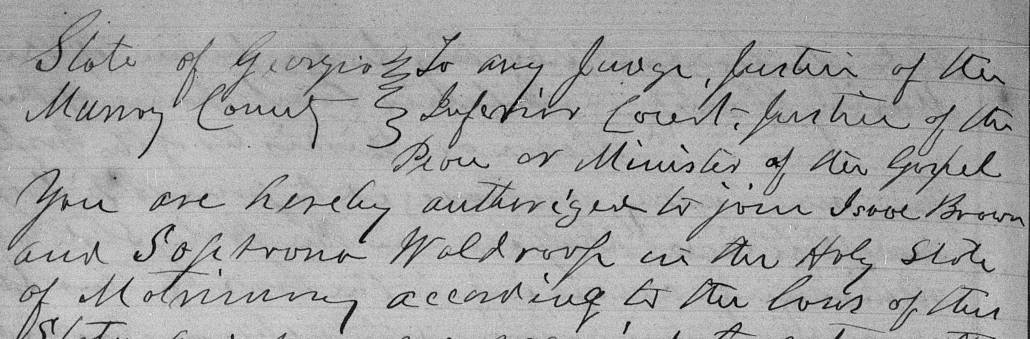 State of Georgia } To any Judge, Justice of the
Murray County } Inferior Court, Justice of the
Peace or Minister of the Gospel
You are hereby authorized to join Isaac Brown
and Sophrona Waldroop in the Holy State
of Matrimony according to the laws of this
State